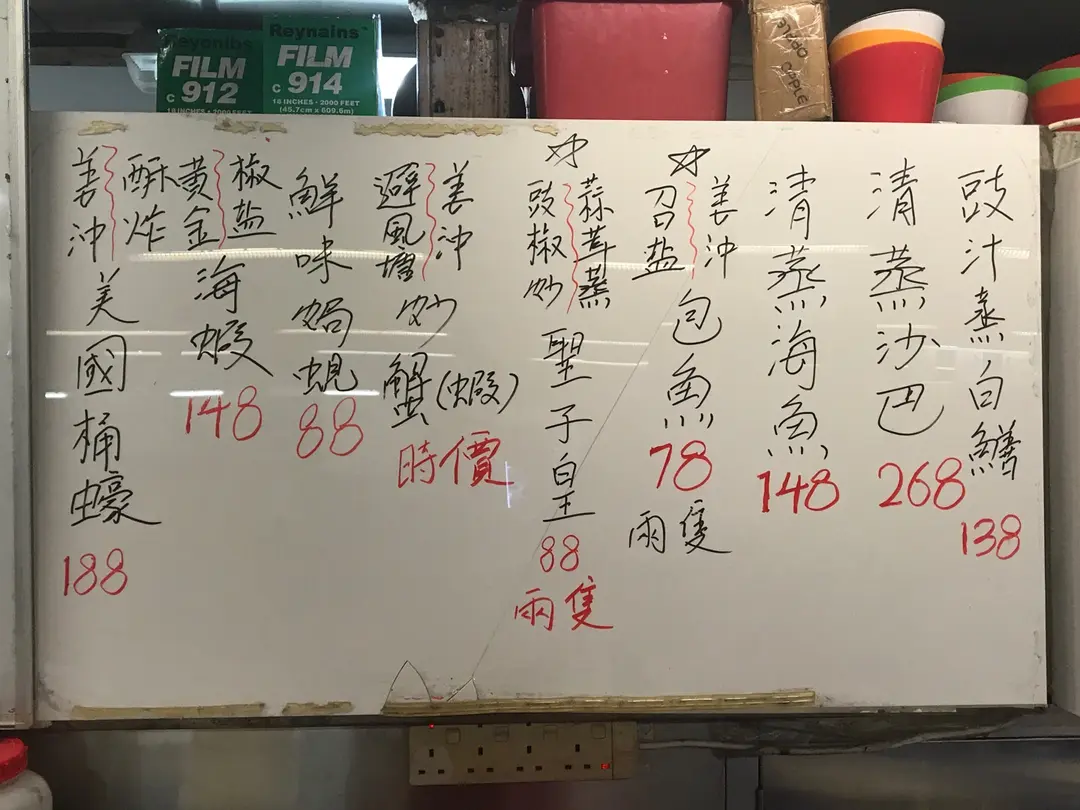 Reynains
FILM
C 912
18 INCHES · 2000 FEET
Reynains
FILM
C 914
18 INCHES · 2000 FEET
(45.7cm x 609.6m)
豉汁蒸白鱔
138
清蒸沙巴
268
清蒸海魚
148
☆
姜沖
召盐
包魚
78
兩隻
☆
蒜茸蒸
豉椒炒
聖子皇
88
兩隻
姜沖
避風塘
炒蟹(蝦)
時價
鮮味焗蜆
88
椒盐
黃金
海蝦
148
酥炸
姜沖
美國桶蠔
188